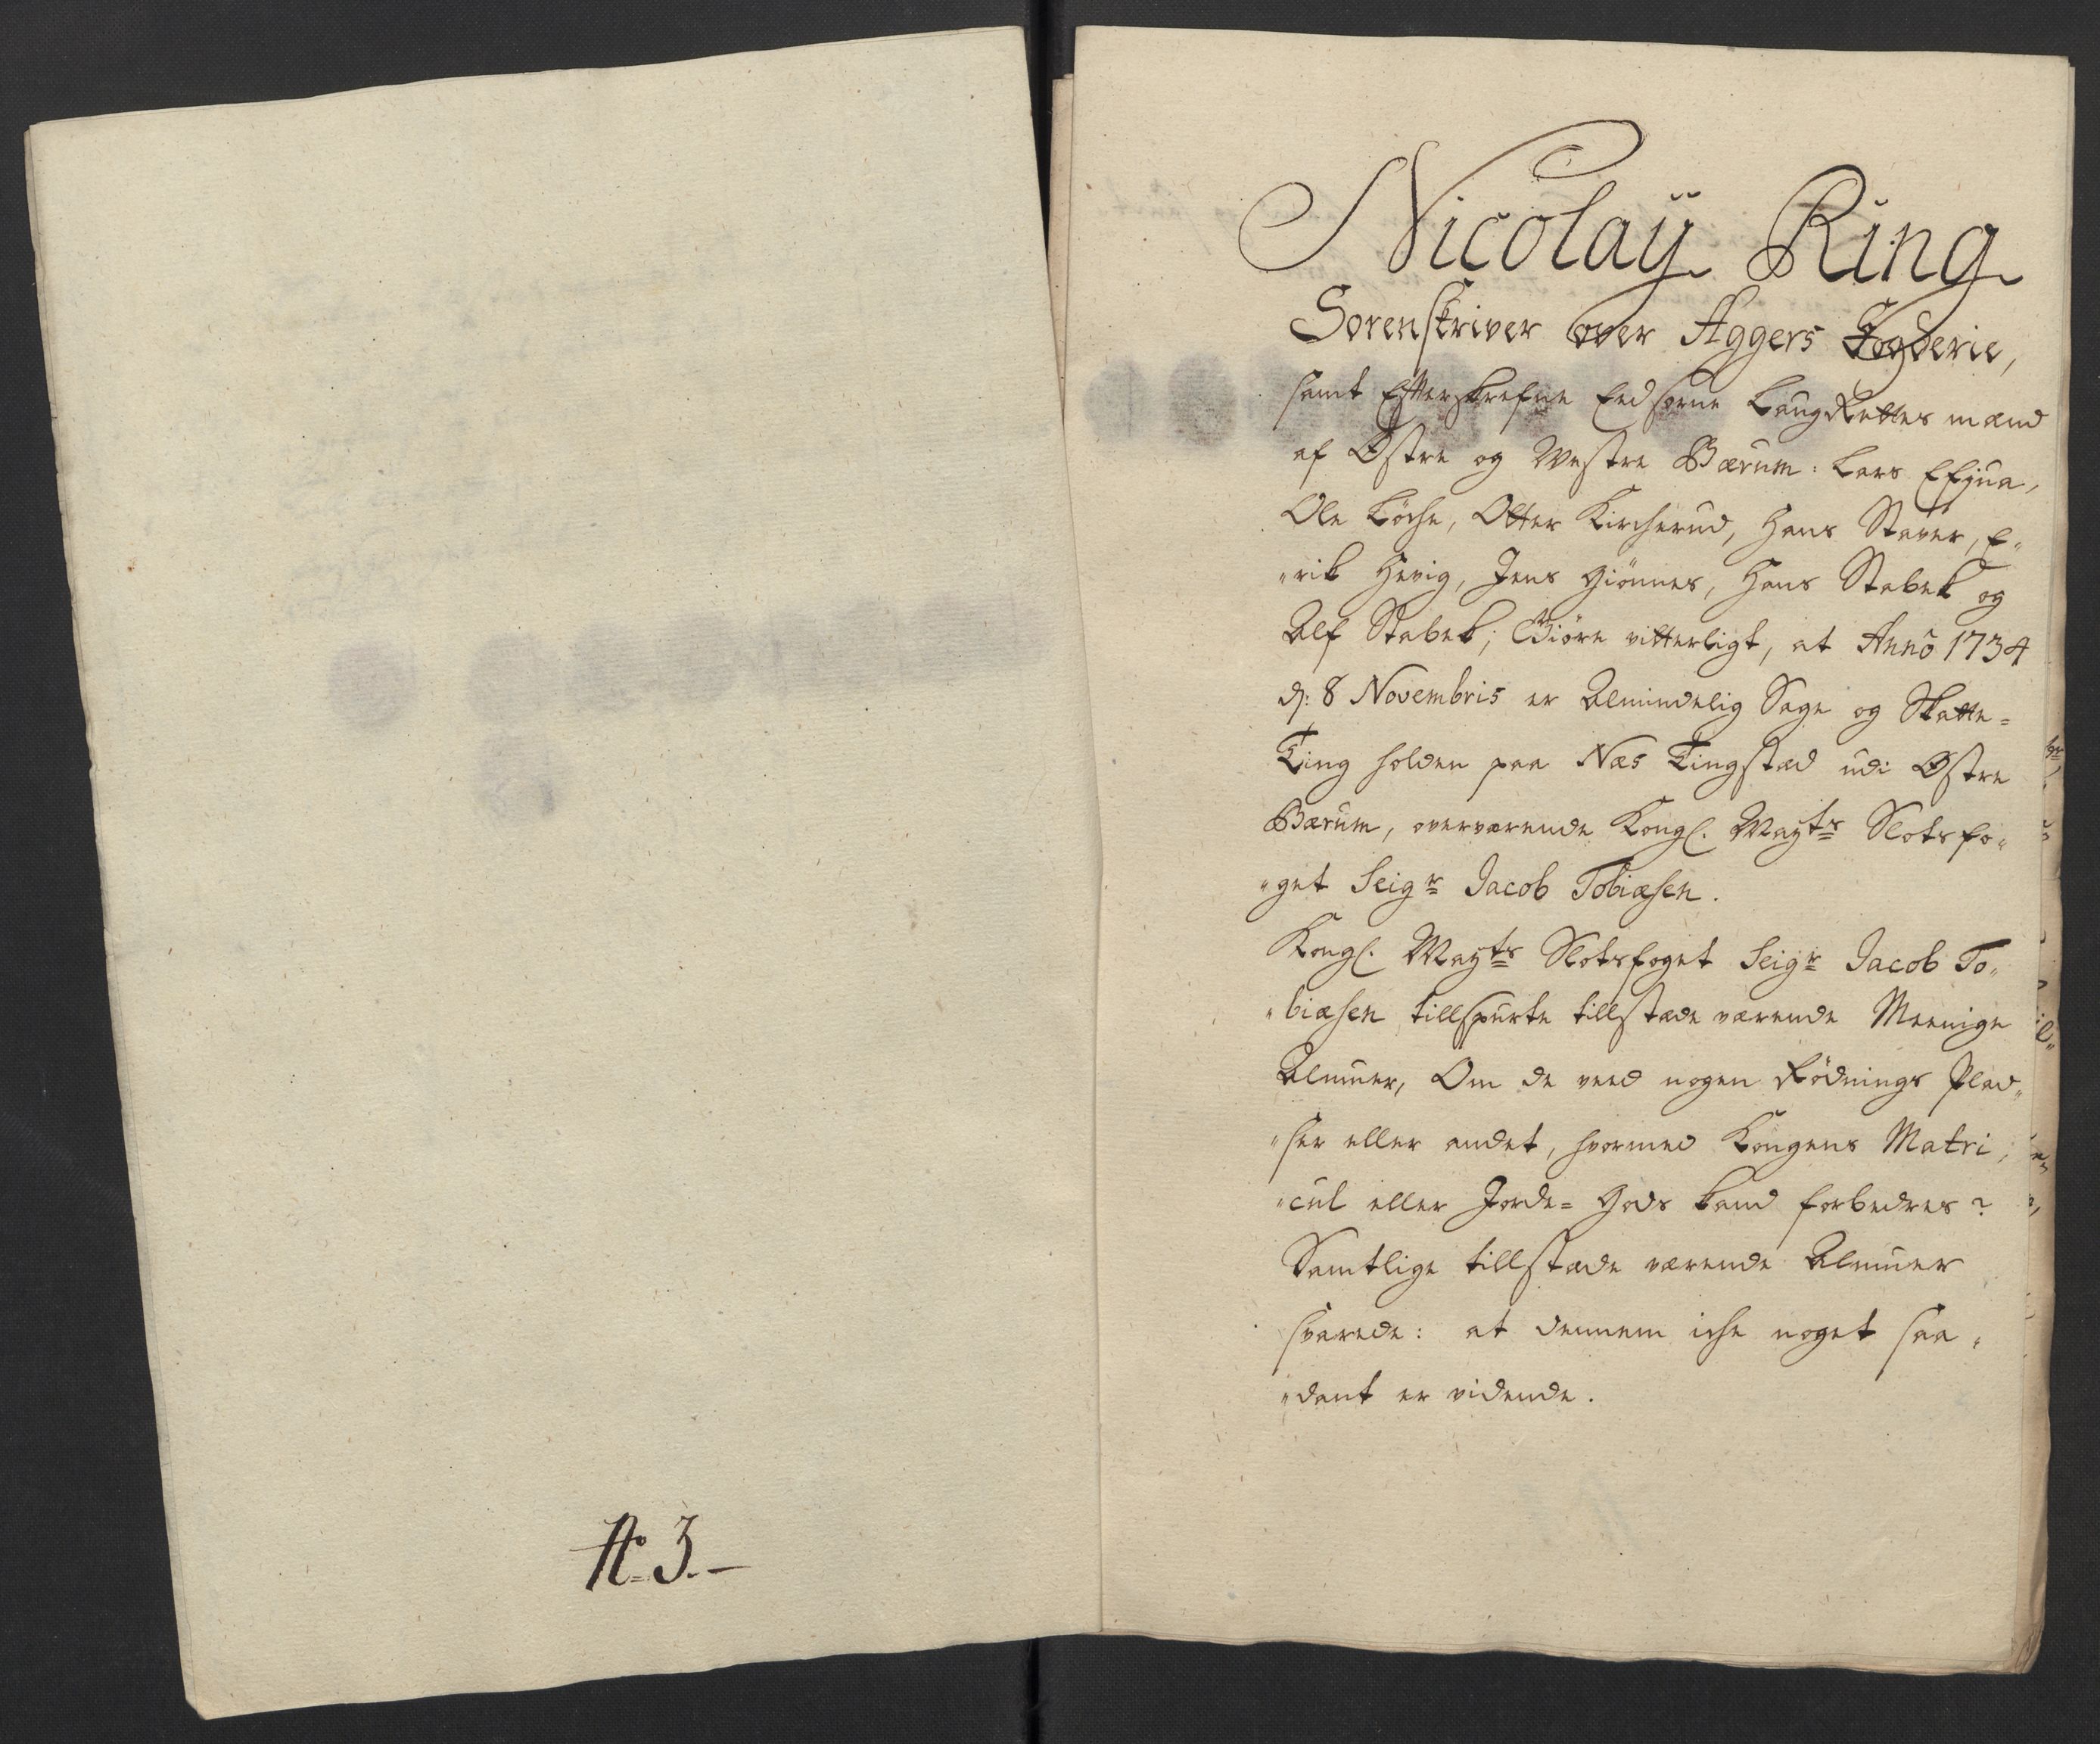 N: 3.-
Nicolay Ring
Sorenskriver over Aggers Fogderie,
samt Efterskrefne Eedsorne Laugrettes mænd
af Østre og Westre Bærum: Lars Efjua,
Ole Löche, Otter Kircherud, Hans Staver, E„
„rik Hevig, Jens Giönnes, Hans Stabek og
Alf Stabek; Giöre vitterligt, at Anno 1734
d: 8 Novembris er Almindelig Sage og Skatte=
Ting holden paa Næs Tingstæd udi Østre
Bærum, overværende Kongl. Mayts Slotsfo„
„get Seigr Jacob Tobiæsen.
Kongl. Mayts Slotsfoget Seigr Jacob To„
„biæsen tillspurte tillstæde værende Meenige
Almuer, Om de veed nogen Rödnings Plad„
„ser eller andet, hvormed Kongens Matri„
„cul eller Jorde=Gods kand forbedres?
Samtlige tillstæde værende Almuer
svarede: at dennem iche noget saa„
„dant er vidende.